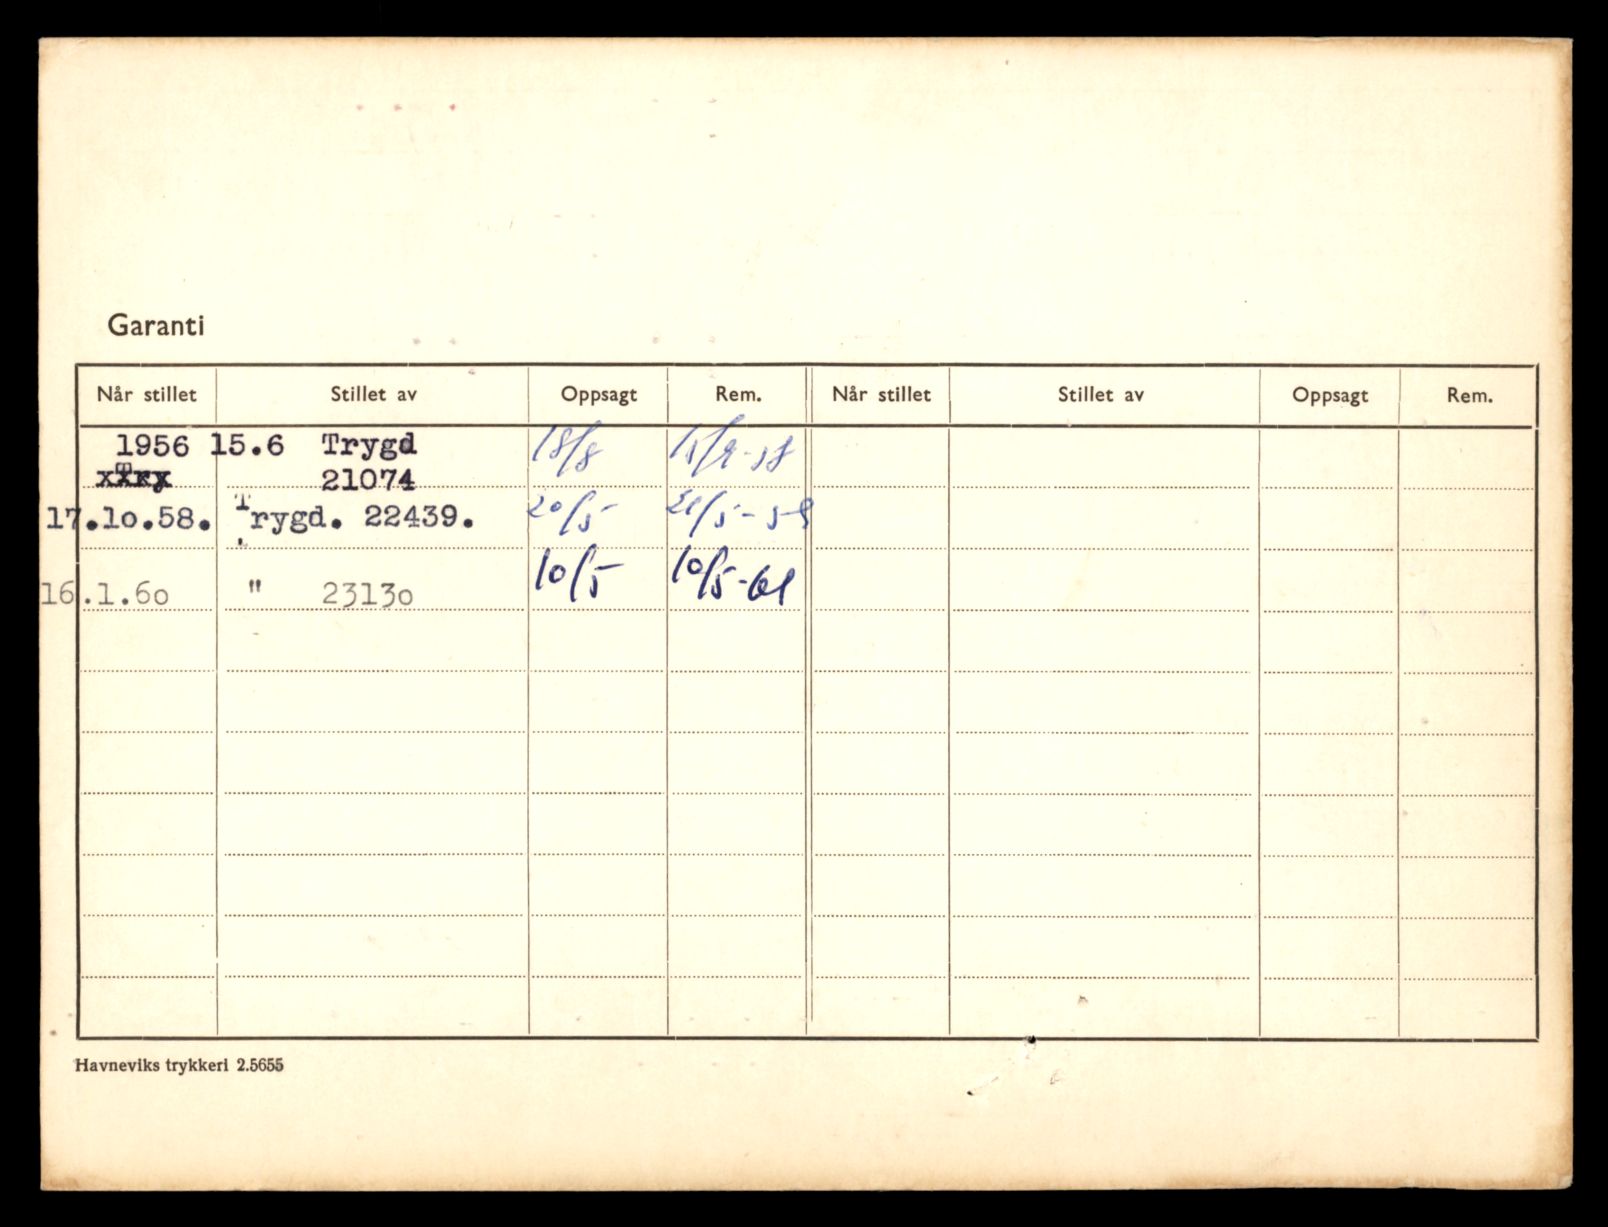 Garanti
Når stillet Stillet av Oppsagt Rem. Når stillet Stillet av Oppsagt Rem.
1956 15.6 Trygd 18/8
21074
17.1o.58. Trygd. 22439. 20/5 21/5-59
16.1.6o " 2313o 10/5 10/5-61
Havneviks trykkeri 2.5655